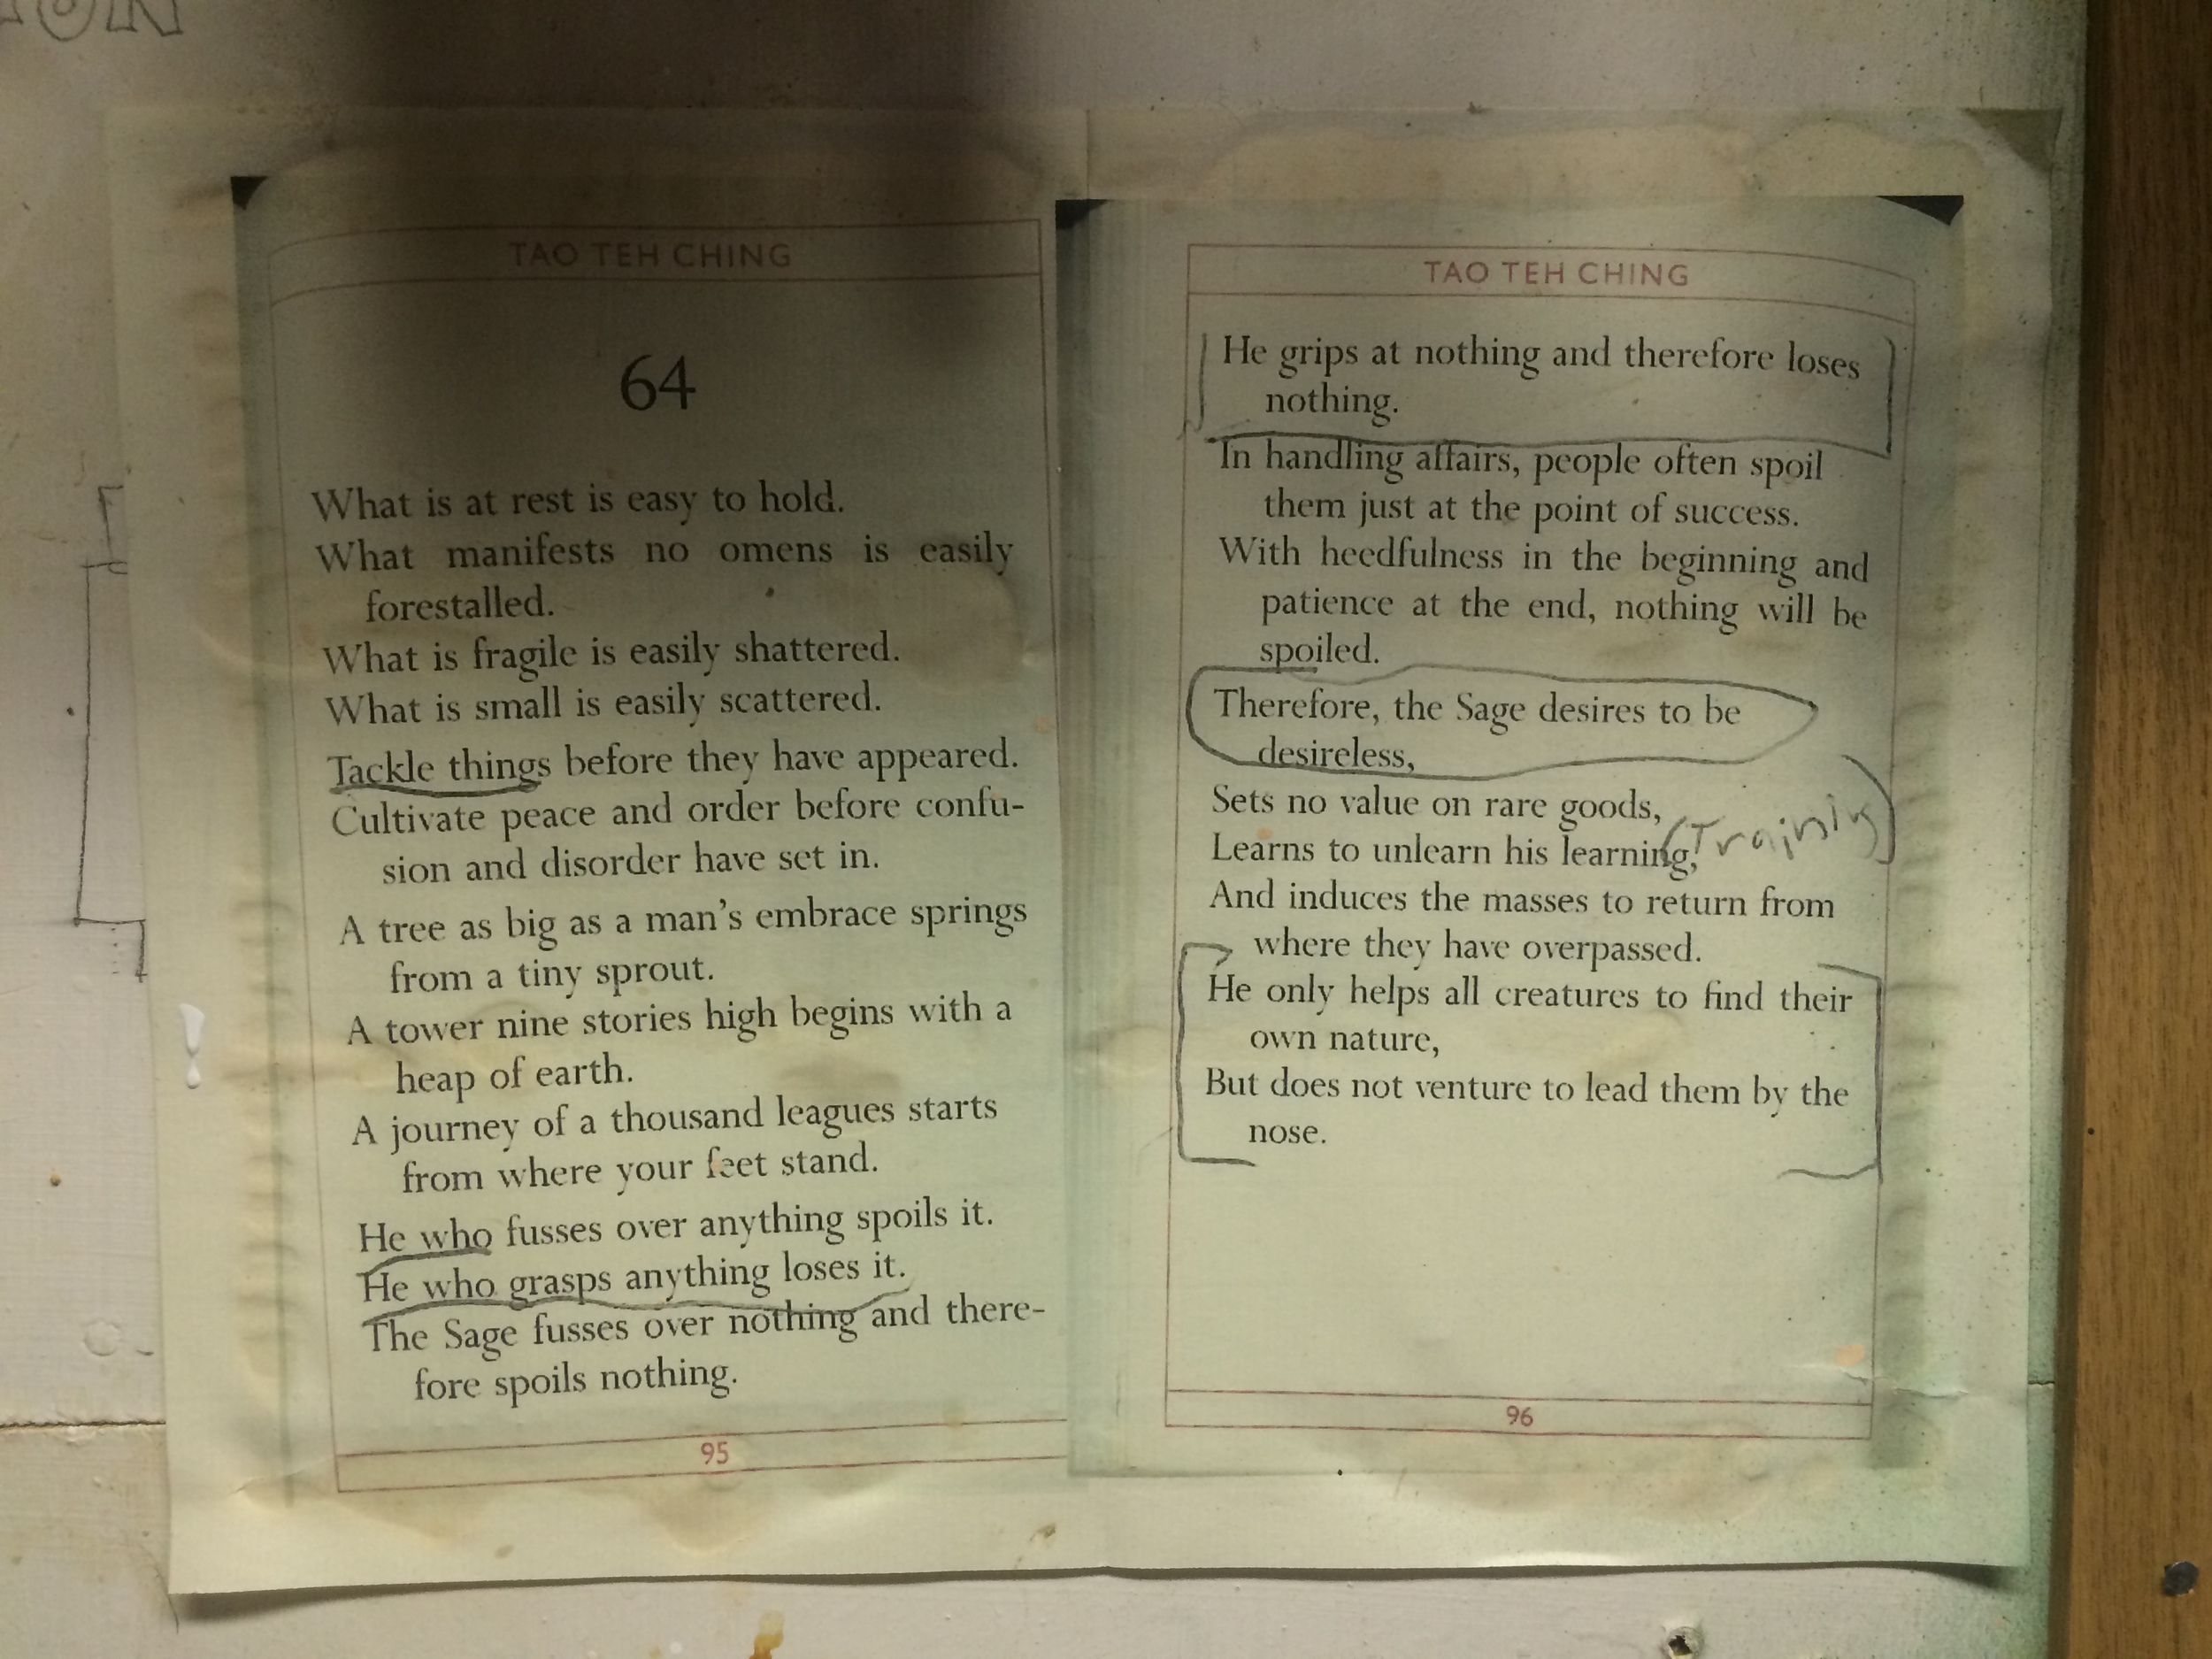 TAO TEH CHING
64
What is at rest is easy to hold.
What manifests no omens is easily
forestalled.
What is fragile is easily shattered.
What is small is easily scattered.
Tackle things before they have appeared.
Cultivate peace and order before confu-
sion and disorder have set in.
A tree as big as a man's embrace springs
from a tiny sprout.
A tower nine stories high begins with a
heap of earth.
A journey of a thousand leagues starts
from where your feet stand.
He who fusses over anything spoils it.
He who grasps anything loses it.
The Sage fusses over nothing and there-
fore spoils nothing.
95
TAO TEH CHING
He grips at nothing and therefore loses
nothing.
In handling affairs, people often spoil
them just at the point of success.
With heedfulness in the beginning and
patience at the end, nothing will be
spoiled.
Therefore, the Sage desires to be
desireless,
Sets no value on rare goods,
Learns to unlearn his learning,
And induces the masses to return from
where they have overpassed.
He only helps all creatures to find their
own nature,
But does not venture to lead them by the
nose.
96